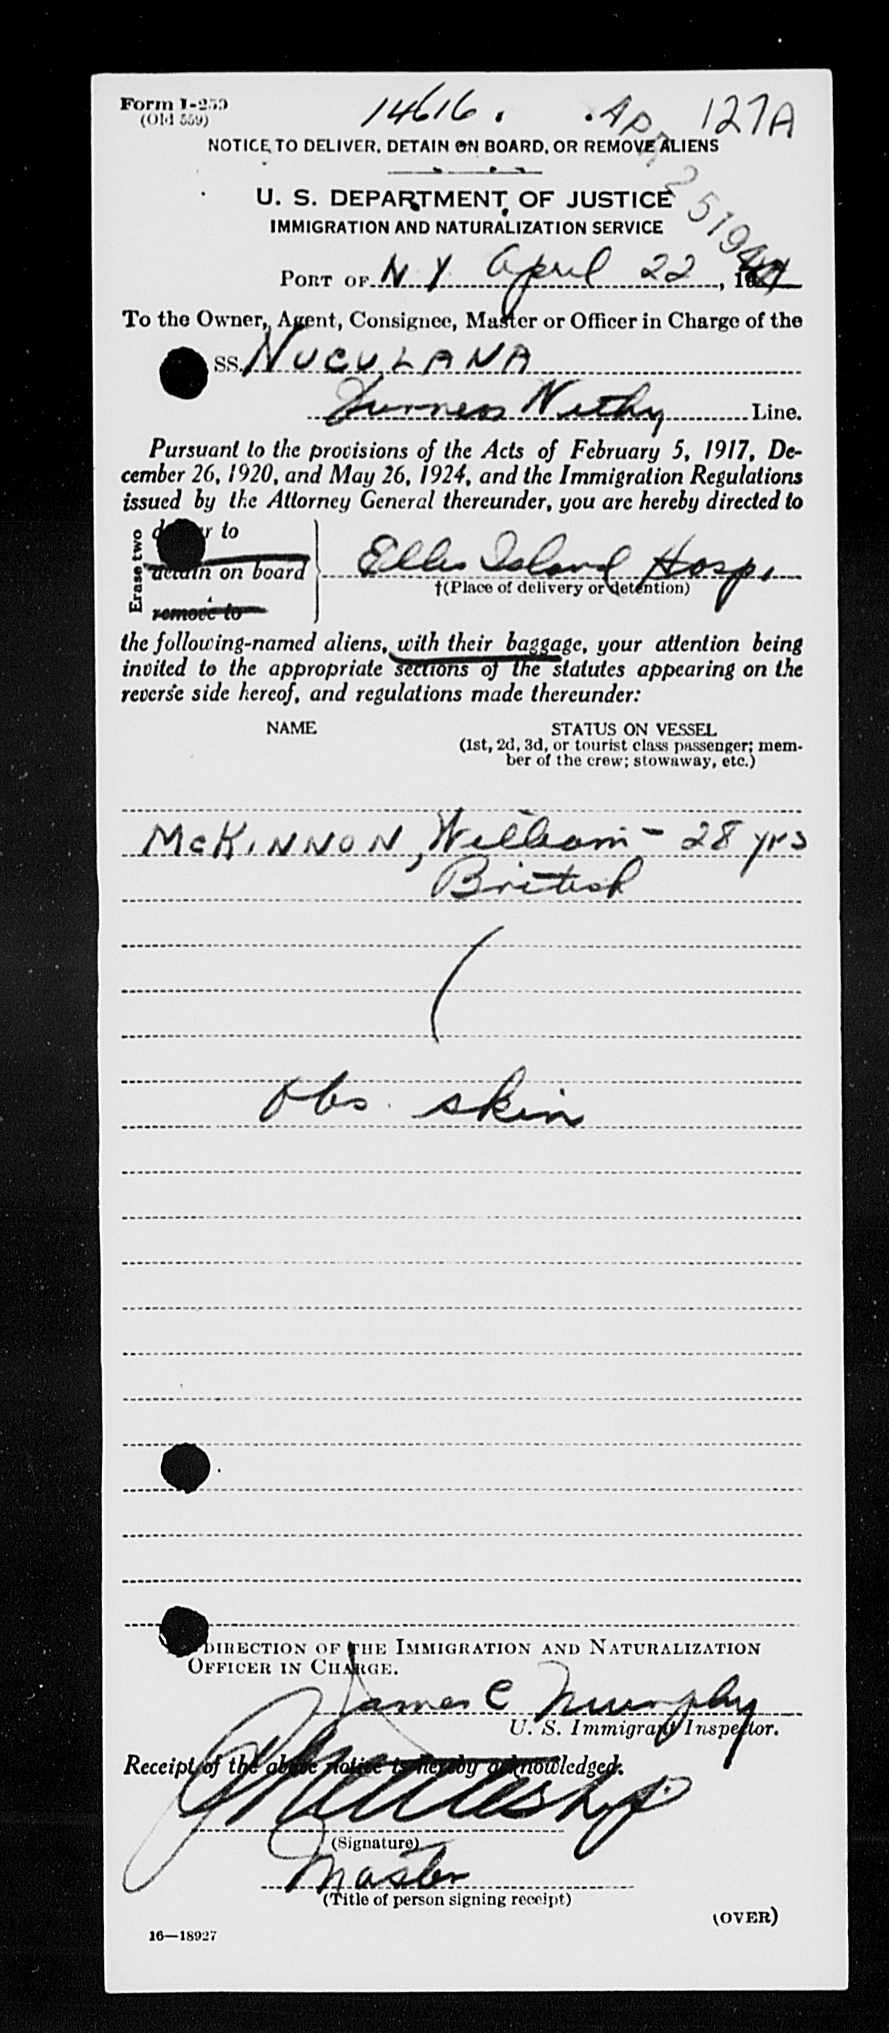 Form I-259
(Old 559)
14616.
127A
APR 25 1944
NOTICE TO DELIVER, DETAIN ON BOARD, OR REMOVE ALIENS
U. S. DEPARTMENT OF JUSTICE
IMMIGRATION AND NATURALIZATION SERVICE
PORT OF N Y April 22, 1944
To the Owner, Agent, Consignee, Master or Officer in Charge of the
SS. NUCULANA
Furness Withy Line.
Pursuant to the provisions of the Acts of February 5, 1917, De-
cember 26, 1920, and May 26, 1924, and the Immigration Regulations
issued by the Attorney General thereunder, you are hereby directed to
Erase two
deliver to
detain on board
remove to
Ellis Island Hosp.
†(Place of delivery or detention)
the following-named aliens, with their baggage, your attention being
invited to the appropriate sections of the statutes appearing on the
reverse side hereof, and regulations made thereunder:
NAME
STATUS ON VESSEL
(1st, 2d, 3d, or tourist class passenger; mem-
ber of the crew; stowaway, etc.)
McKINNON, William - 28 yrs
British
(
Obs. skin
DIRECTION OF THE IMMIGRATION AND NATURALIZATION
OFFICER IN CHARGE.
James C Murphy
U. S. Immigrant Inspector.
Receipt of the above notice is hereby acknowledged.
(Signature)
Master
(Title of person signing receipt)
(OVER)
16—18927